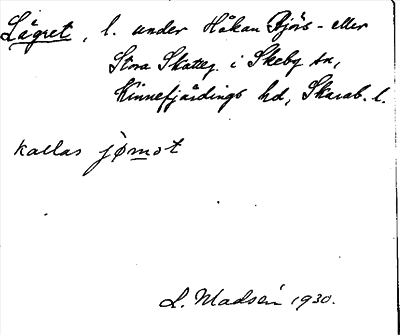 Lågret, l. under Håkan Björs- eller
Stora Skatteg. i Skeby sn,
Kinnefjärdings hd, Skarab. l.
kallas jømot
L. Madsén 1930.